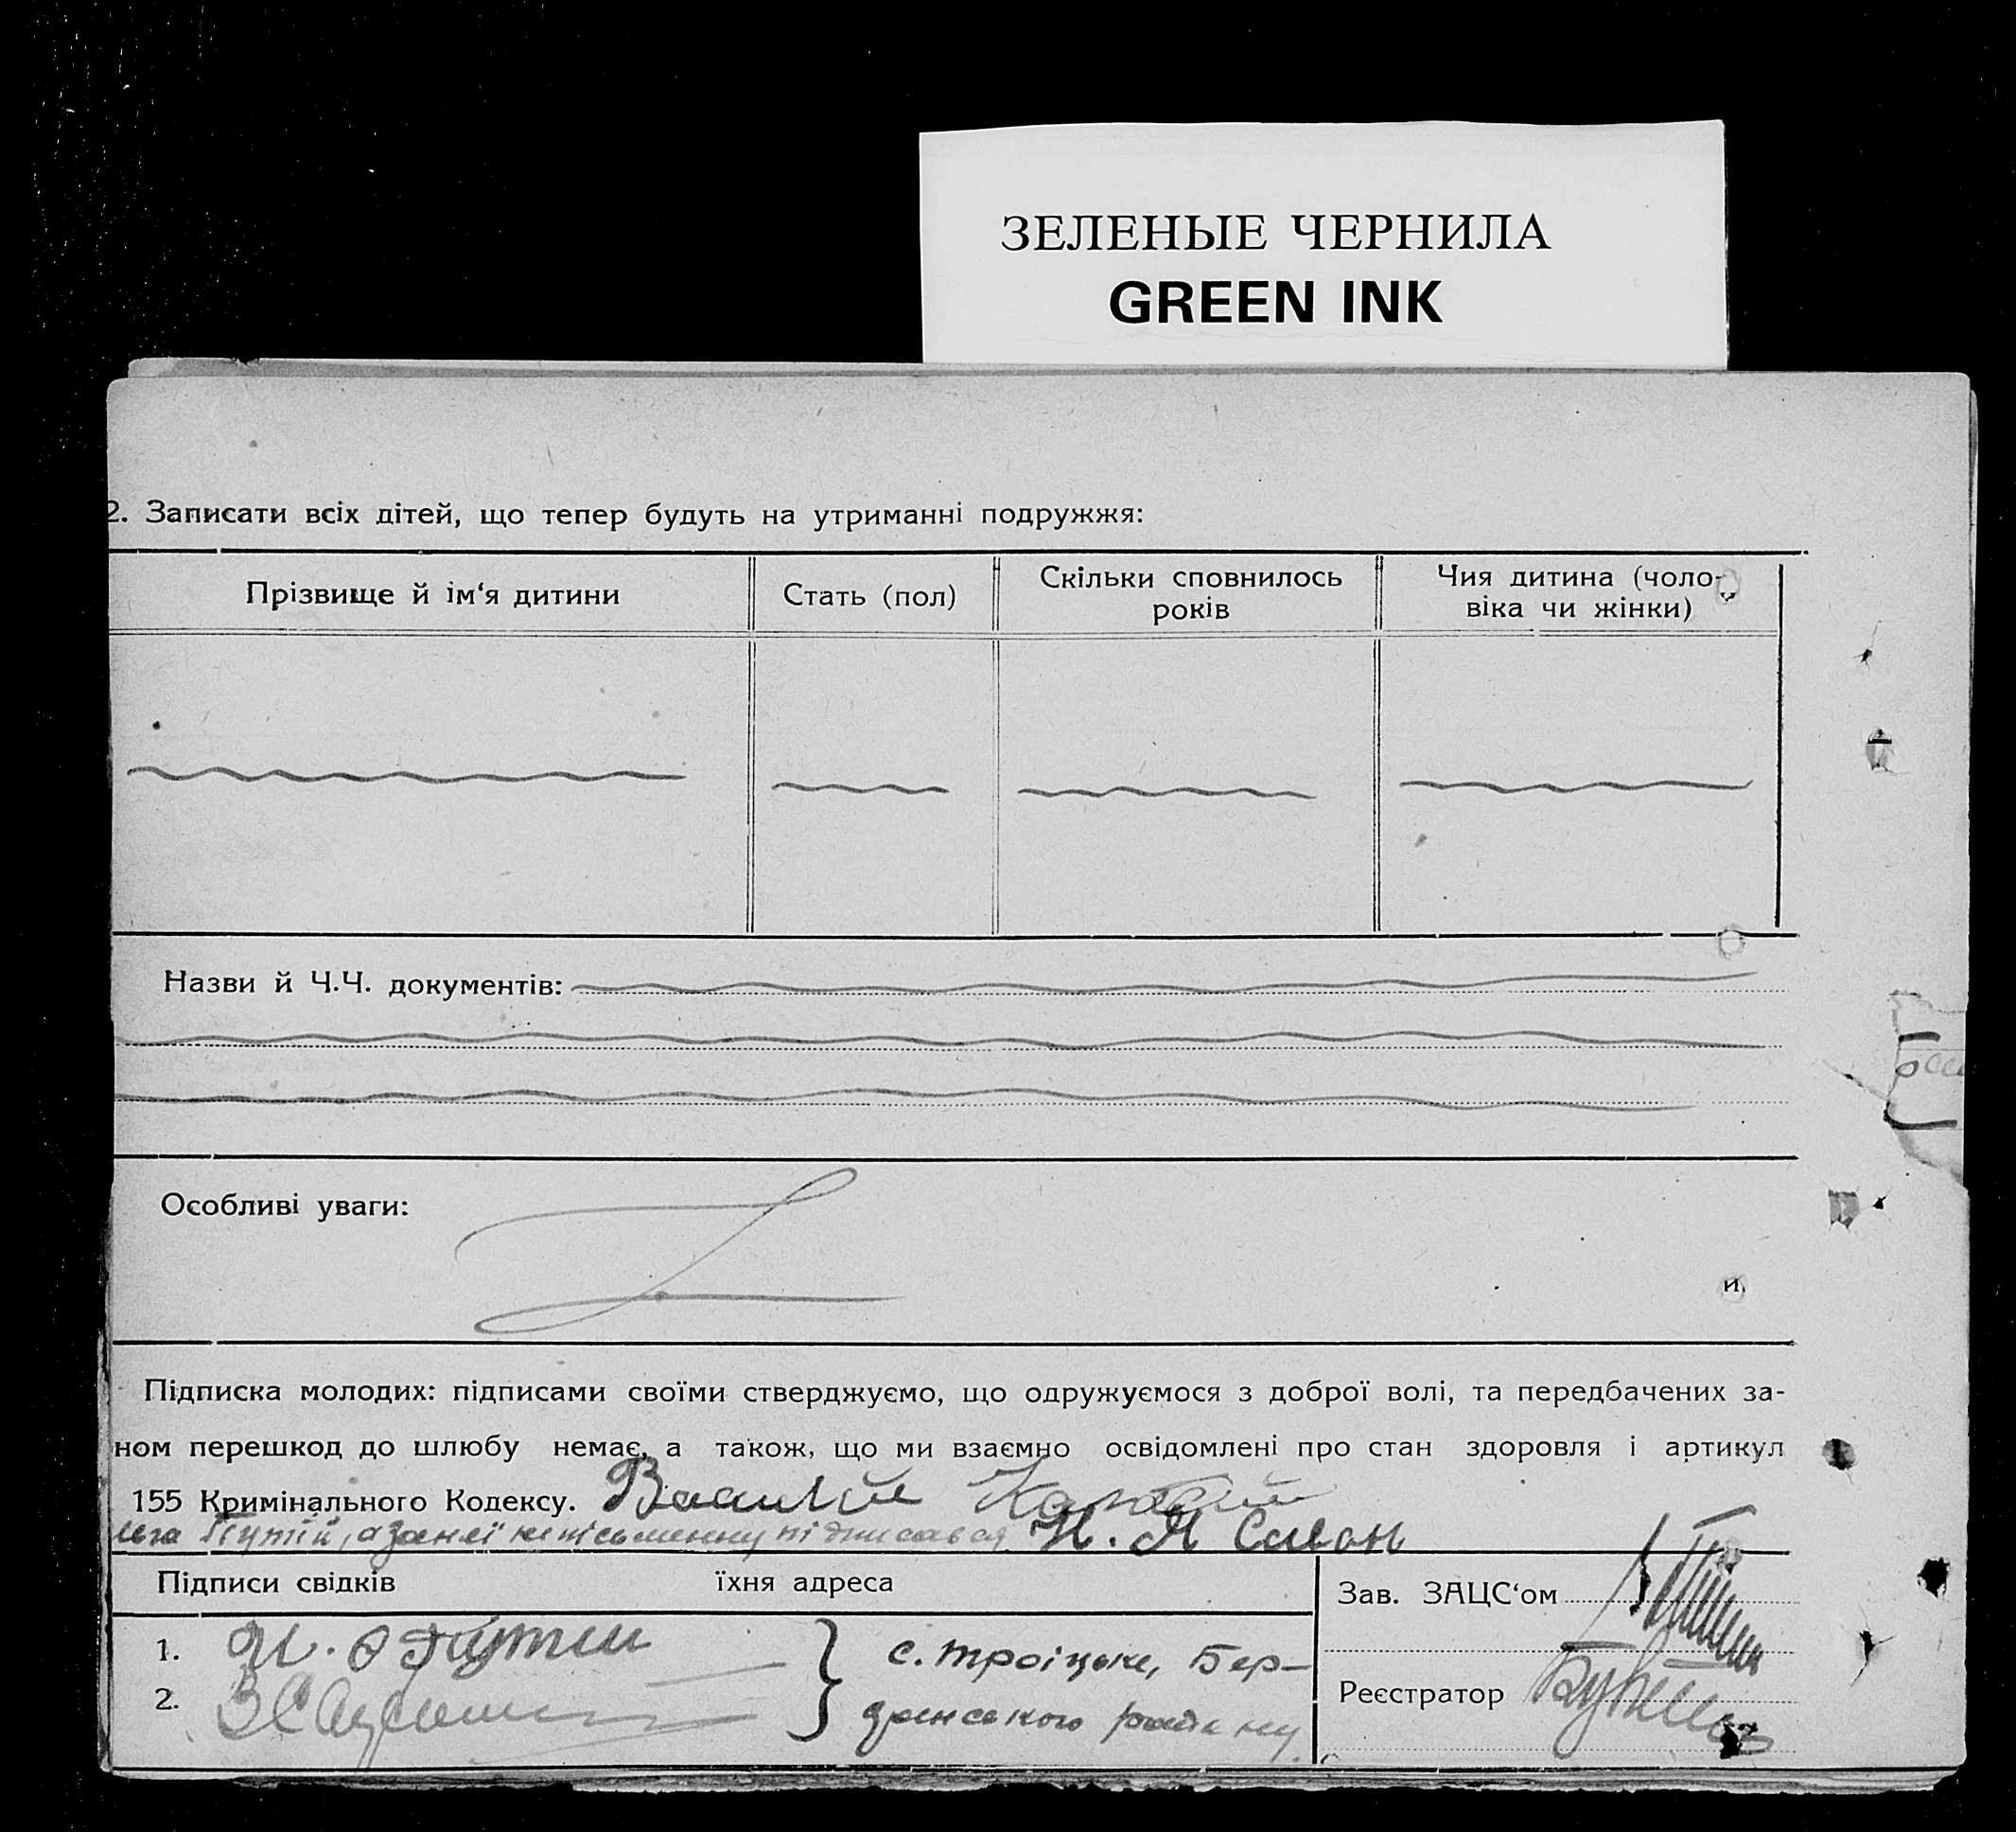 ЗЕЛЕНЫЕ ЧЕРНИЛА
GREEN INK
2. Записати всіх дітей, що тепер будуть на утриманні подружжя:
Прізвище й ім‘я дитини
Стать (пол)
Скільки сповнилось
років
Чия дитина (чоло-
віка чи жінки)
Назви й Ч.Ч. документів:
Особливі уваги:
и.
Підписка молодих: підписами своїми стверджуємо, що одружуємося з доброї волі, та передбачених за-
ном перешкод до шлюбу немає, а також, що ми взаємно освідомлені про стан здоровля і артикул
155 Кримінального Кодексу. Василий
а за неї неписьменну підписався
Підписи свідків їхня адреса
1.
2.
с. Троіцьке, Бер-
дянського району.
Зав. ЗАЦС‘ом
Реєстратор